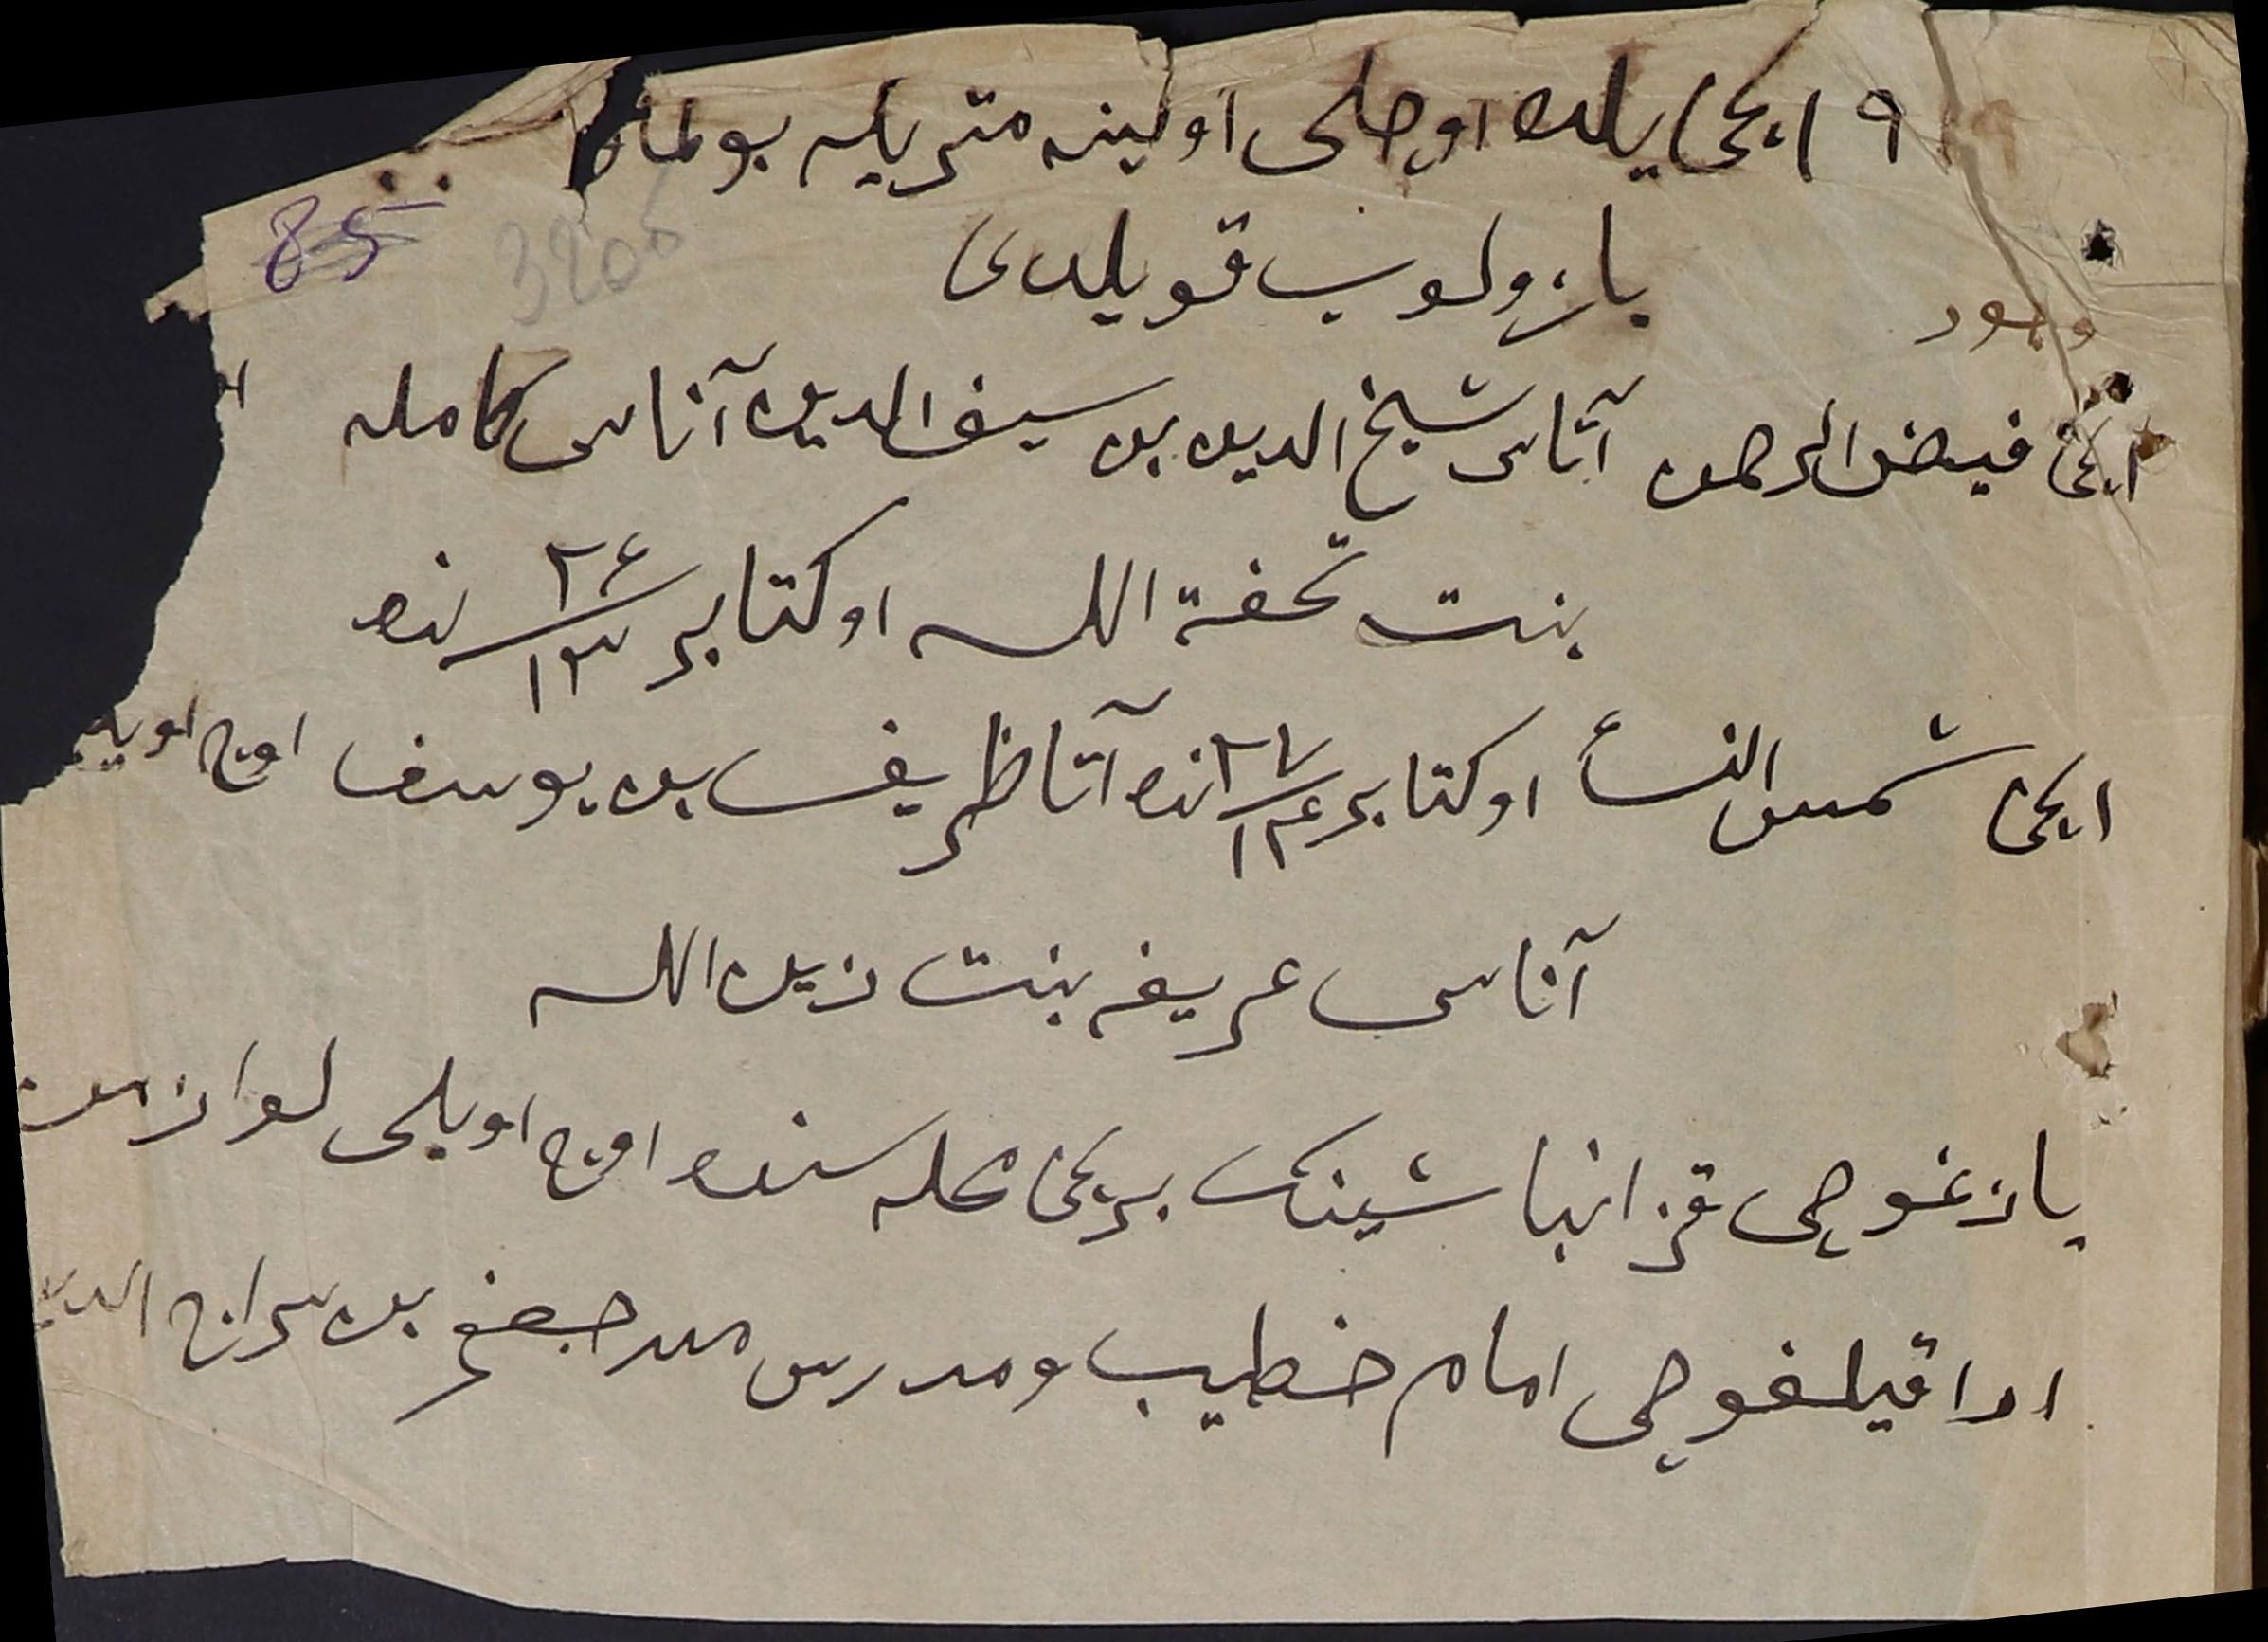 ١٩ انچی یلده اوچلی اولینه متریکه بولماغا
یازولوب قویلدی
85
3206
انچی فیض الرحمن آتاسی شیخ الدین بن سیف الدین آناسی کامله
بنت تحفة الله اوکتابر ٢٤/١٣ نده
انچی شمس النسأ اوکتابر ٢٧/١٤ نده آتا ظریف بن یوسف اوچ اویلی
آناسی عریفه بنت زین الله
یازغوچی قزانباشینک برنچی محله سنده اوچ اویلی لوازمن
ادا قیلغوچی امام خطیب ومدرس محمد جعفر بن سراج الدین